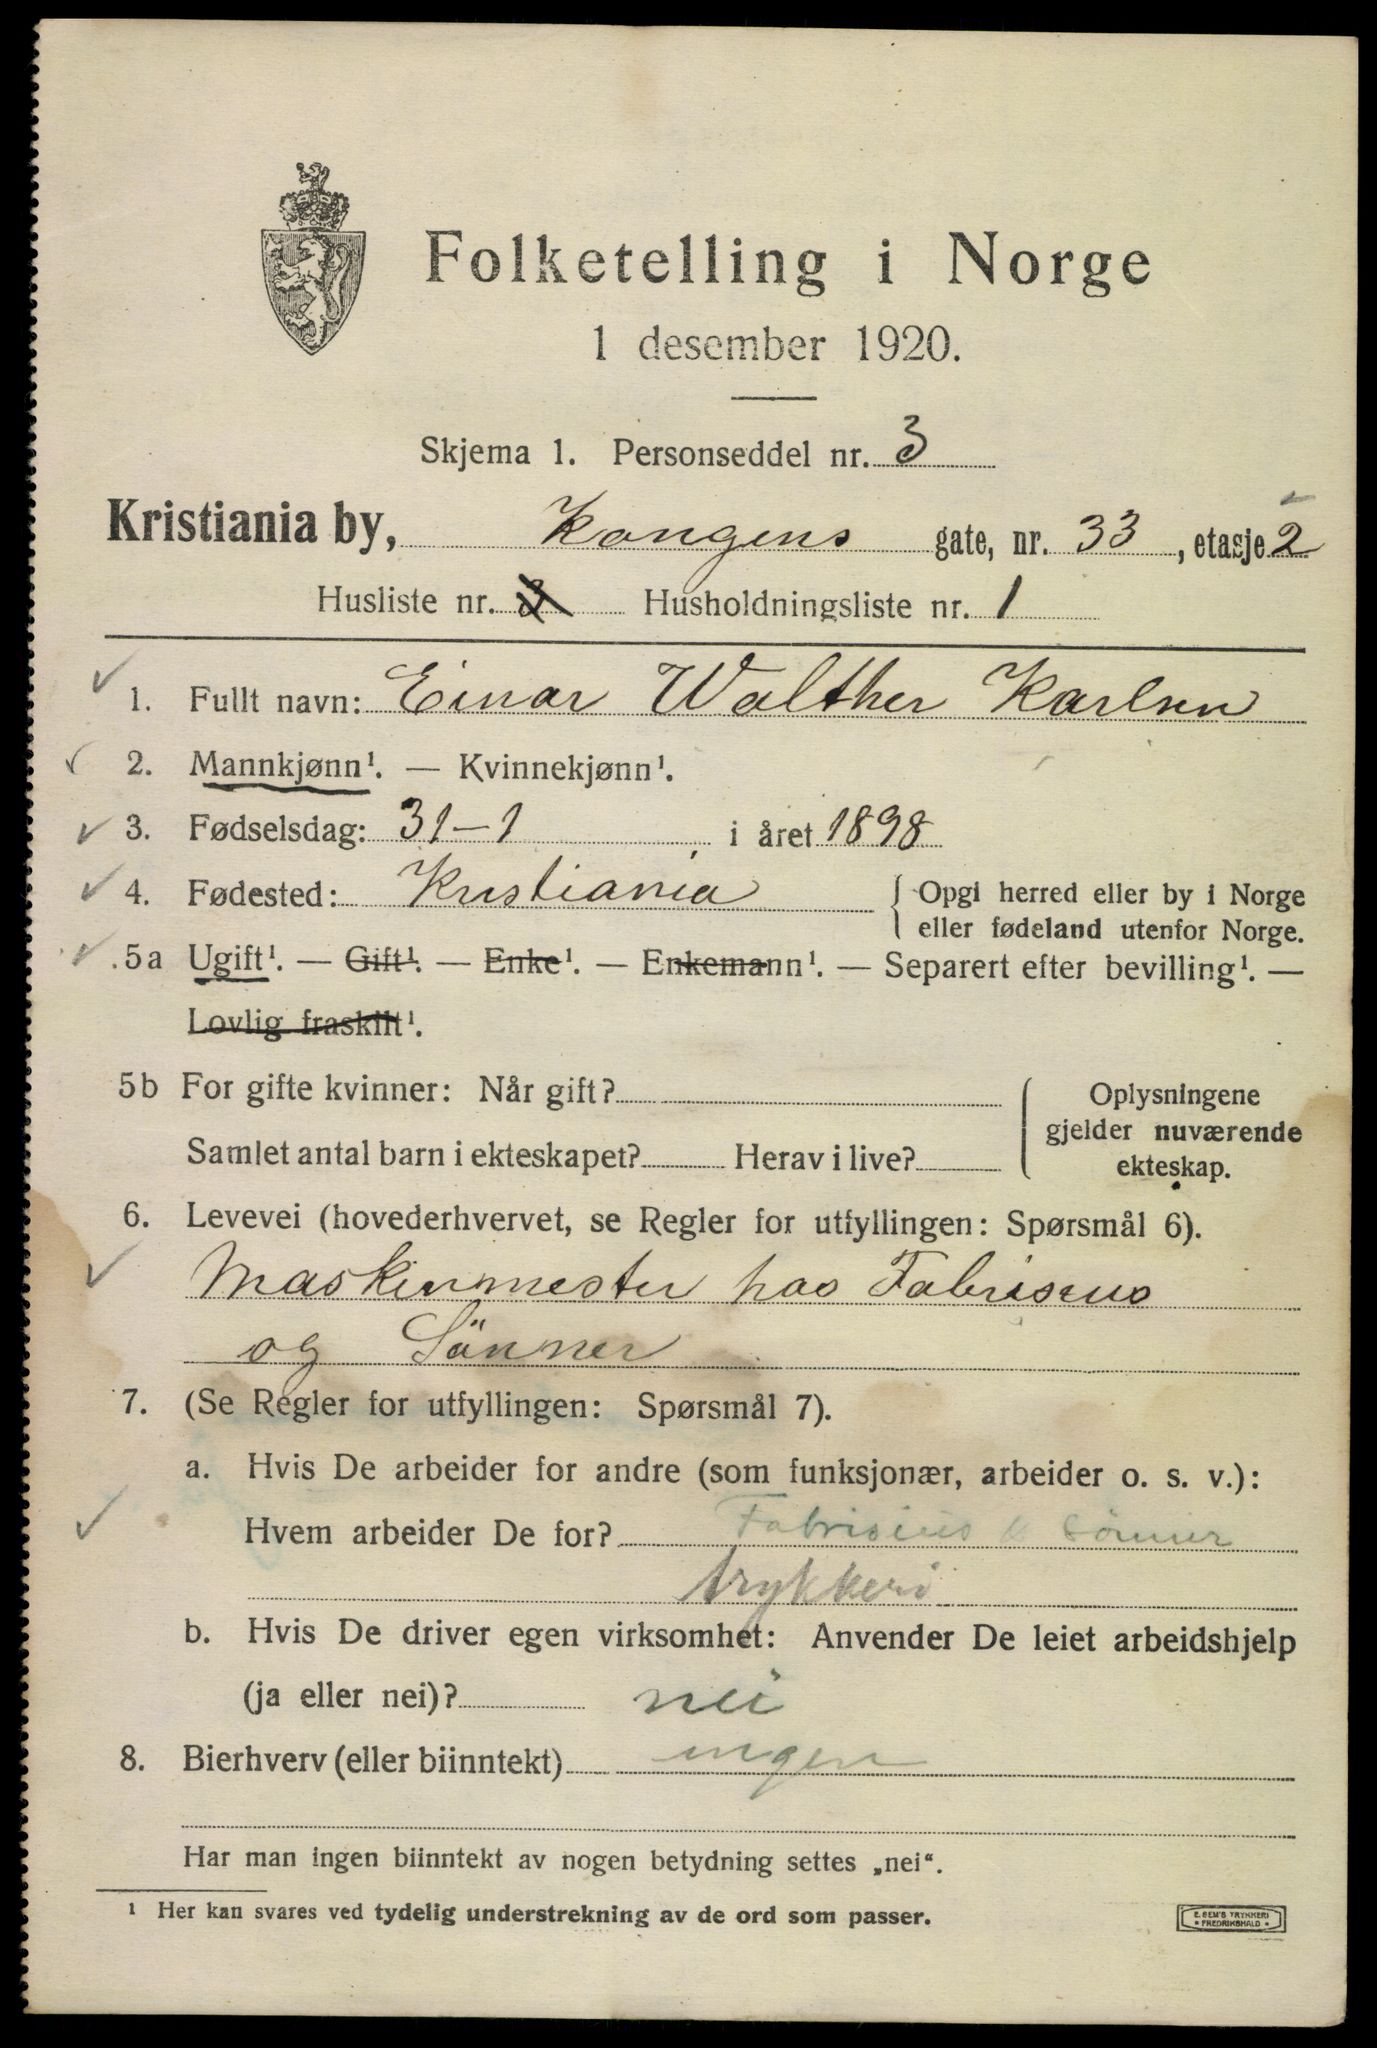 Folketelling i Norge
1 desember 1920.
Skjema 1. Personseddel nr. 3
Kristiania by, Kongens gate, nr. 33, etasje 2
Husliste nr. 3 Husholdningsliste nr. 1
1. Fullt navn: Einar Walther Karlsen
2. Mannkjønn¹. — Kvinnekjønn¹.
3. Fødselsdag: 31-1 i året 1898
4. Fødested: Kristiania { Opgi herred eller by i Norge
eller fødeland utenfor Norge.
5a Ugift¹. — Gift¹. — Enke¹. — Enkemann¹. — Separert efter bevilling¹. —
Lovlig fraskilt¹.
5b For gifte kvinner: Når gift?
Samlet antal barn i ekteskapet? Herav i live?
Oplysningene
gjelder nuværende
ekteskap.
6. Levevei (hovederhvervet, se Regler for utfyllingen: Spørsmål 6).
Maskinmester hos Fabrisius
og Sönner
7. (Se Regler for utfyllingen: Spørsmål 7).
a. Hvis De arbeider for andre (som funksjonær, arbeider o. s. v.):
Hvem arbeider De for? Fabrisius & Sönner
trykkeri
b. Hvis De driver egen virksomhet: Anvender De leiet arbeidshjelp
(ja eller nei)? nei
8. Bierhverv (eller biinntekt) ingen
Har man ingen biinntekt av nogen betydning settes „nei“.
¹ Her kan svares ved tydelig understrekning av de ord som passer.
E. SEM'S TRYKKERI
* FREDRIKSHALD *